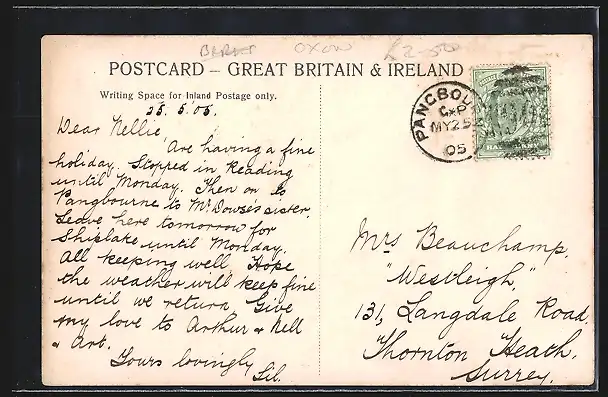 BERKS OXON £2-50
POSTCARD – GREAT BRITAIN & IRELAND
Writing Space for Inland Postage only.
25. 5. 05.
Dear Nellie
Are having a fine
holiday. Stopped in Reading
until Monday. Then on to
Pangbourne to Mr Dowse's sister.
Leave here tomorrow for
Shiplake until Monday.
All keeping well. Hope
the weather will keep fine
until we return. Give
my love to Arthur & Nell
& Art.
Yours lovingly
Lil.
PANGBOU
G P
MY 25
05
Mrs Beauchamp,
"Westleigh,"
131, Langdale Road,
Thornton Heath,
Surrey.